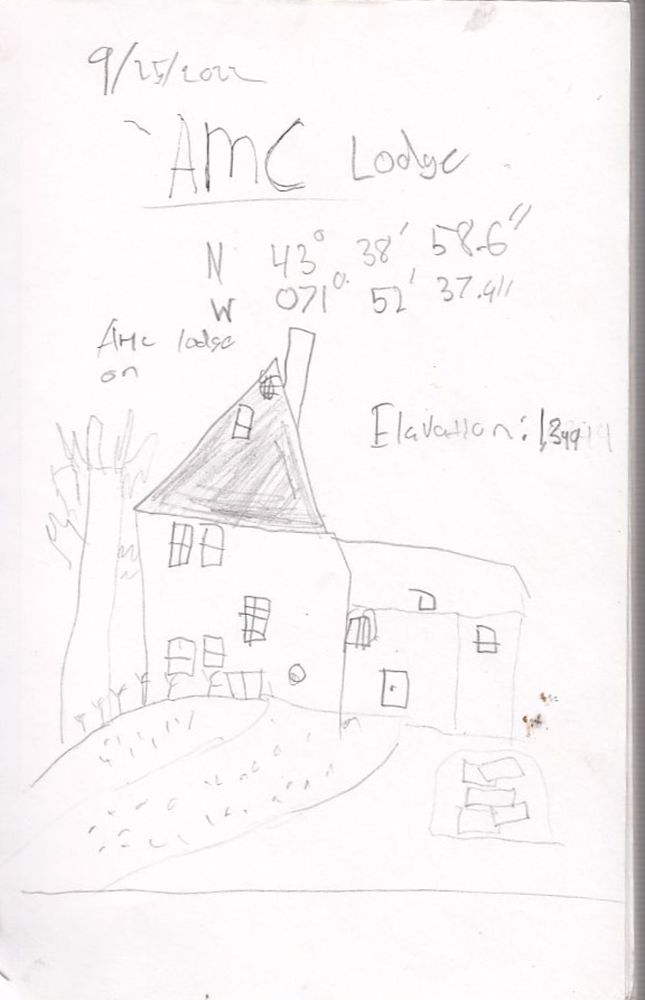 9/25/2022
AMC Lodge
N 43° 38' 58.6"
W 071° 52' 37.4"
AMC lodge
on
Elavation: